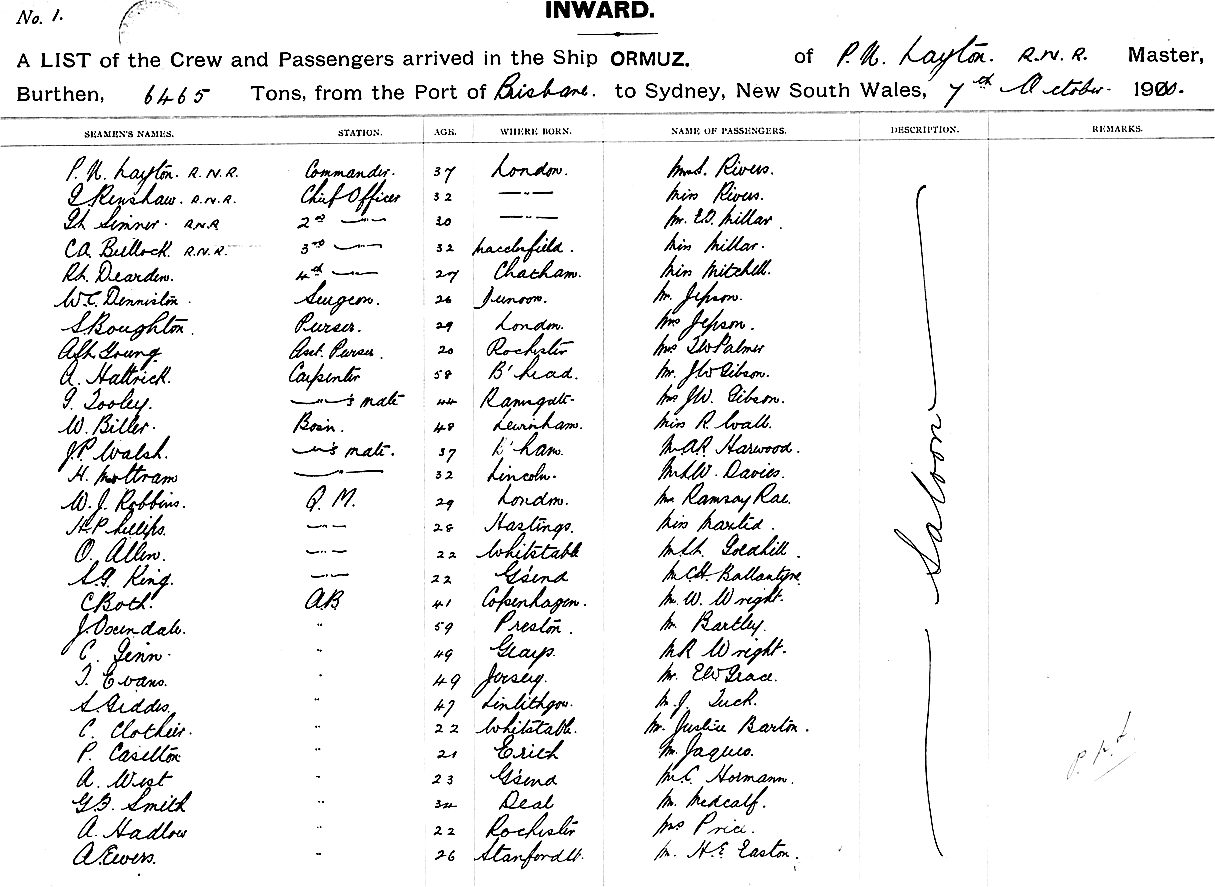 No. 1.
INWARD.
A LIST of the Crew and Passengers arrived in the Ship ORMUZ. of P.N. Layton. R.N.R. Master,
Burthen, 6465 Tons, from the Port of Brisbane. to Sydney, New South Wales, 7th October. 1900.
SEAMEN'S NAMES. STATION. AGE. WHERE BORN. NAME OF PASSENGERS. DESCRIPTION. REMARKS.
P.N. Layton. R.N.R. Commander. 37 London. Rivers.
Renshaw. R.N.R. Chief Officer 32 —"— Miss Rivers.
Simner. R.N.R 2nd —"— 30 —"— Mr. E.D. Millar
C.A. Bullock. R.N.R. 3rd —"— 32 Macclesfield. Miss Millar.
Dearden. 4th —"— 27 Chatham. Miss Mitchell.
W.C. Denniston Surgeon. 26 Dunoon. Mr. Jepson.
S Boughton. Purser. 29 London. Mrs Jepson.
Young Asst. Purser. 20 Rochester Mrs Palmer
A. Hattrick. Carpenter 58 B'head. Mr. J W Gibson.
Tooley. —"—'s mate 44 Ramsgate. Mrs J W. Gibson.
W. Biller. Bosn. 48 Lewisham. Miss R. Wall.
J.P. Walsh. —"—'s mate. 37 Harwood.
H. Mottram —"— 32 Lincoln. Davies.
W. J. Robbins. Q. M. 29 London. Ramsay Rae.
H P Phillips. —"— 28 Hastings. Miss
O. Allen. —"— 22 Whitstable Goldhill.
King. —"— 22 G'send M C H Ballantyne
C Both. AB 41 Copenhagen. M. W. Wright.
J. Oxendale. " 59 Preston. Mr. Bartley.
C. Jenn. " 49 Grays. M R Wright.
Evans. " 49 Jersey. Mr. E W Grace.
S. Geddes. " 47 Linlithgow. M J. Tuck.
C. Clothier. " 22 Whitstable. Mr. Justice Barton.
P. Caselton " 21 Erith M. Jaques.
A. West " 23 G'send M C. Hormann.
G B. Smith " 34 Deal M. Medcalf.
A. Hadlow " 22 Rochester Mrs Price.
A. Ewers. " 26 Stanford M. H.E Easton.
Saloon